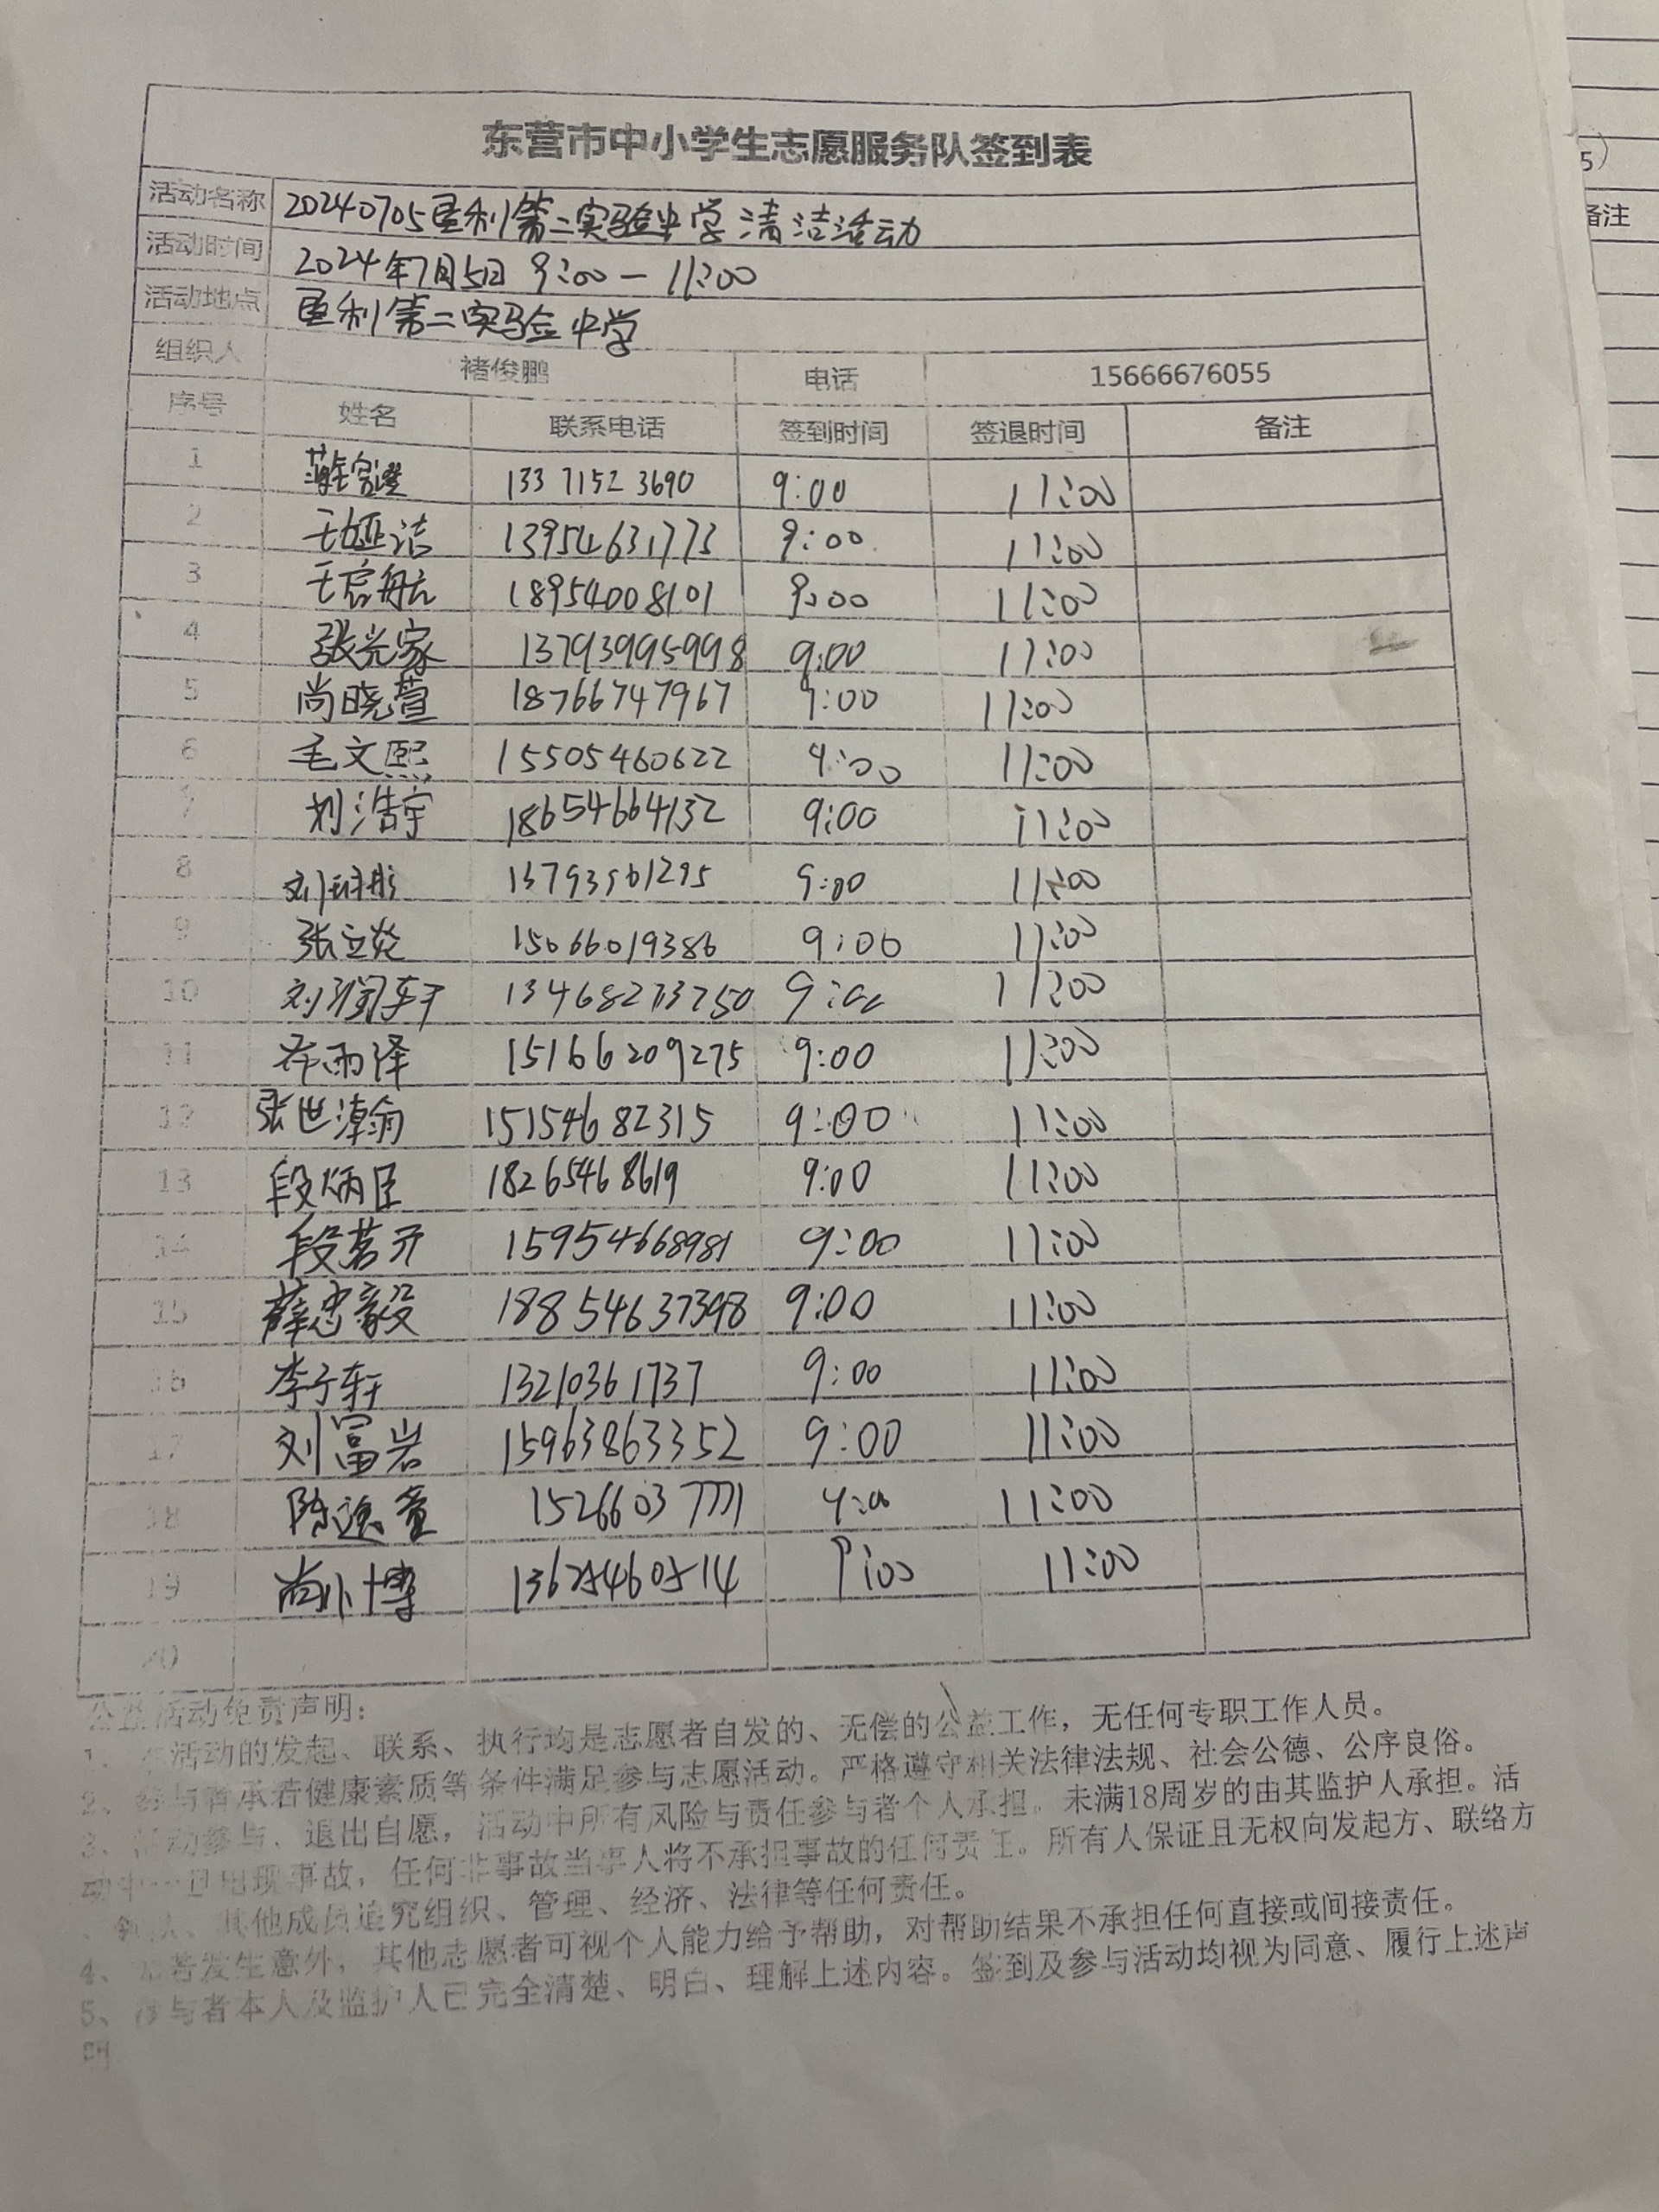 东营市中小学生志愿服务队签到表
活动名称 20240705垦利第二实验中学清洁活动
活动时间 2024年7月5日 9:00-11:00
活动地点 垦利第二实验中学
组织人 褚俊鹏 电话 15666676055
序号 姓名 联系电话 签到时间 签退时间 备注
1 133 7152 3690 9:00 11:00
2 王娅洁 13954631773 9:00 11:00
3 王启航 18954008101 9:00 11:00
4 张光家 13793995998 9:00 11:00
5 尚晓萱 18766747967 9:00 11:00
6 毛文熙 15505460622 9:00 11:00
7 刘浩宇 18654664132 9:00 11:00
8 9:00 11:00
9 张立炎 15066019386 9:00 11:00
10 刘润轩 13468273750 9:00 11:00
11 雨泽 15166209275 9:00 11:00
12 张世瀚 15154682315 9:00 11:00
13 段炳臣 18265468619 9:00 11:00
14 段茗开 15954668981 9:00 11:00
15 薛忠毅 18854637398 9:00 11:00
16 李子轩 13210361737 9:00 11:00
17 刘富岩 15963863352 9:00 11:00
18 陈逸萱 15266037771 9:00 11:00
19 尚小博 13625460514 9:00 11:00
20
公益活动免责声明：
1、本活动的发起、联系、执行均是志愿者自发的、无偿的公益工作，无任何专职工作人员。
2、参与者承若健康素质等条件满足参与志愿活动。严格遵守相关法律法规、社会公德、公序良俗。
3、活动参与、退出自愿，活动中所有风险与责任参与者个人承担。未满18周岁的由其监护人承担。活
动中一旦出现事故，任何非事故当事人将不承担事故的任何责任。所有人保证且无权向发起方、联络方
、其他成员追究组织、管理、经济、法律等任何责任。
4、若发生意外，其他志愿者可视个人能力给予帮助，对帮助结果不承担任何直接或间接责任。
5、参与者本人及监护人已完全清楚、明白、理解上述内容。签到及参与活动均视为同意、履行上述声
明
5）
备注